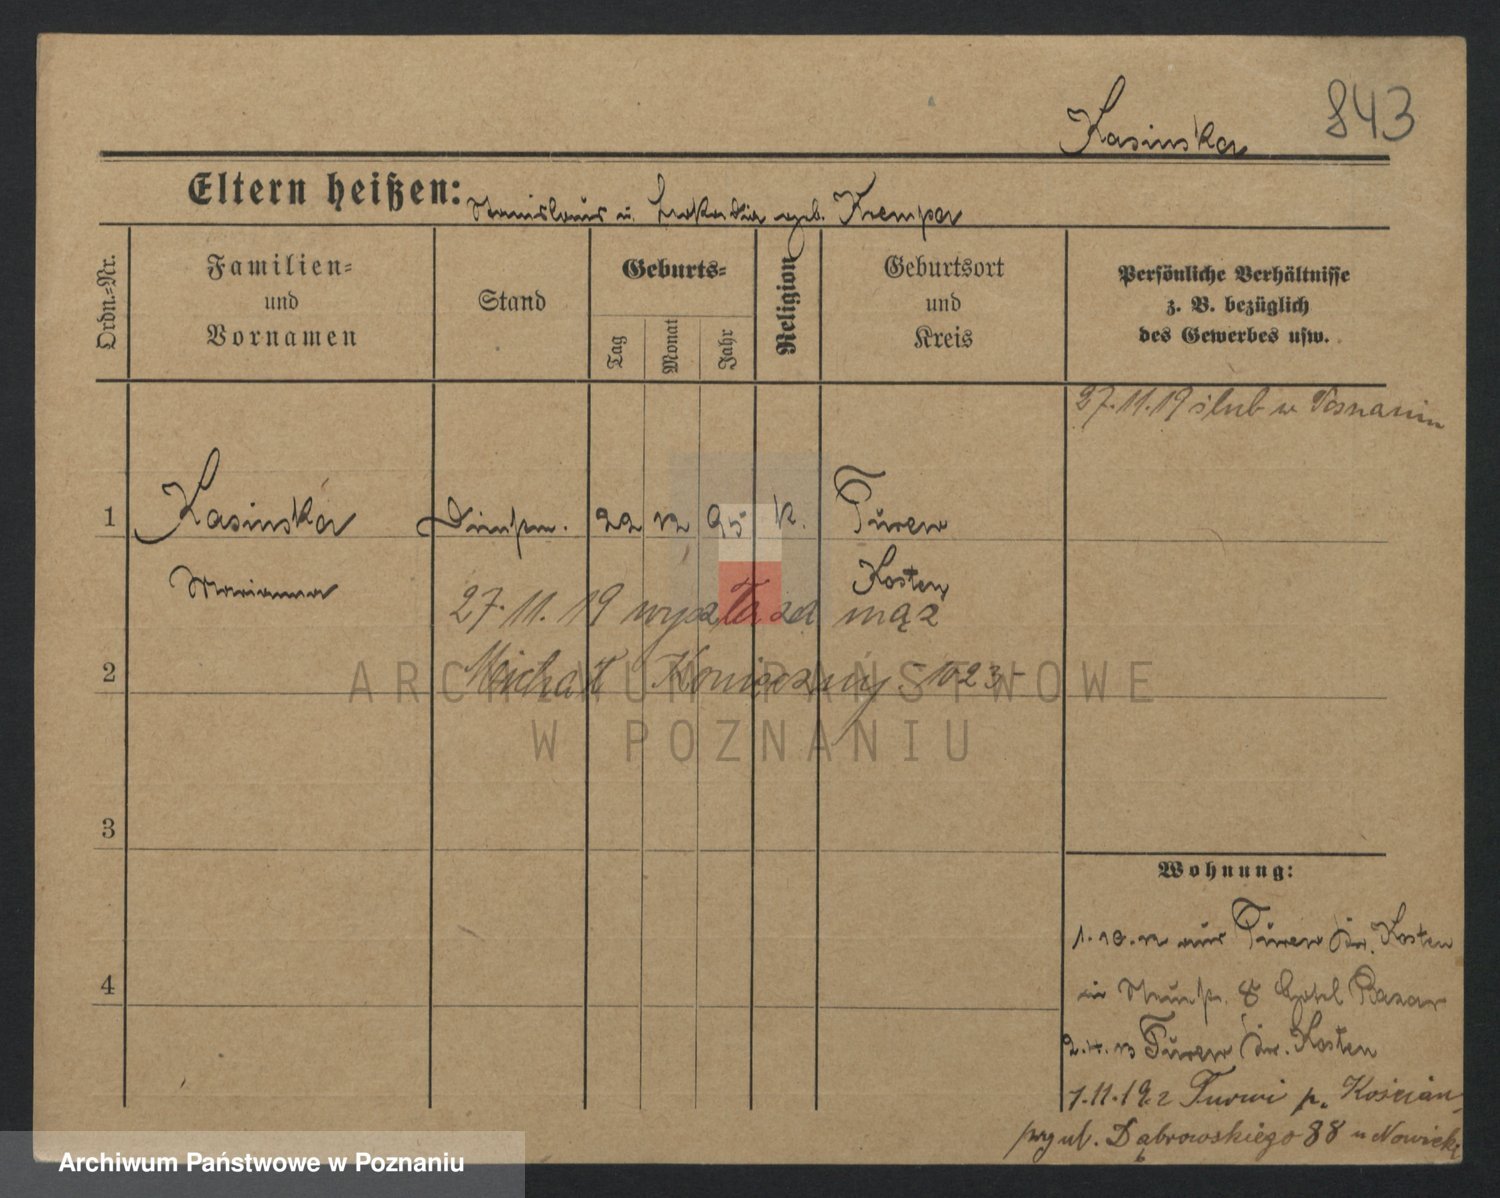 Kasinska 843
Eltern heißen: Stanislaus u. Leokadia geb. Krempa
Ordn.=Nr.
Familien=
und
Vornamen
Stand
Geburts=
Tag
Monat
Jahr
Religion
Geburtsort
und
Kreis
Persönliche Verhältnisse
z. B. bezüglich
des Gewerbes usw.
27.11.19 ślub w Poznaniu
1 Kasinska 22 12 95 k. Turew
Marianna Kosten
27.11.19 wyszła za mąż
2 Michał Konieczny
ARCHIWUM PAŃSTWOWE
W POZNANIU
3
Wohnung:
1.10.12 aus Turew Kr. Kosten
4
in 8 Hotel Bazar
2.4.13 Turew Kr. Kosten
1.11.19 z Turwi p. Kościan
przy ul. Dąbrowskiego 88 u Nowick
Archiwum Państwowe w Poznaniu